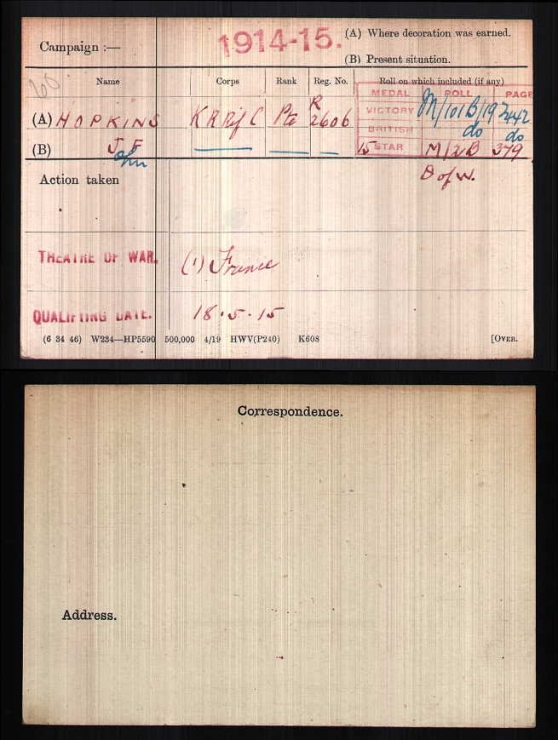 Campaign :—
1914-15.
(A) Where decoration was earned.
(B) Present situation.
Name Corps Rank Reg. No. Roll on which included (if any)
MEDAL ROLL PAGE
(A) HOPKINS K R Rif C Pte R 2606
VICTORY M/101B/19
BRITISH do do
(B) J. F. John
15 STAR M/2B 379
D of W.
Action taken
THEATRE OF WAR. (1) France
QUALIFYING DATE. 18.5.15
(6 34 46) W234—HP5590 500,000 4/19 HWV(P240) K608 [OVER.
Correspondence.
Address.